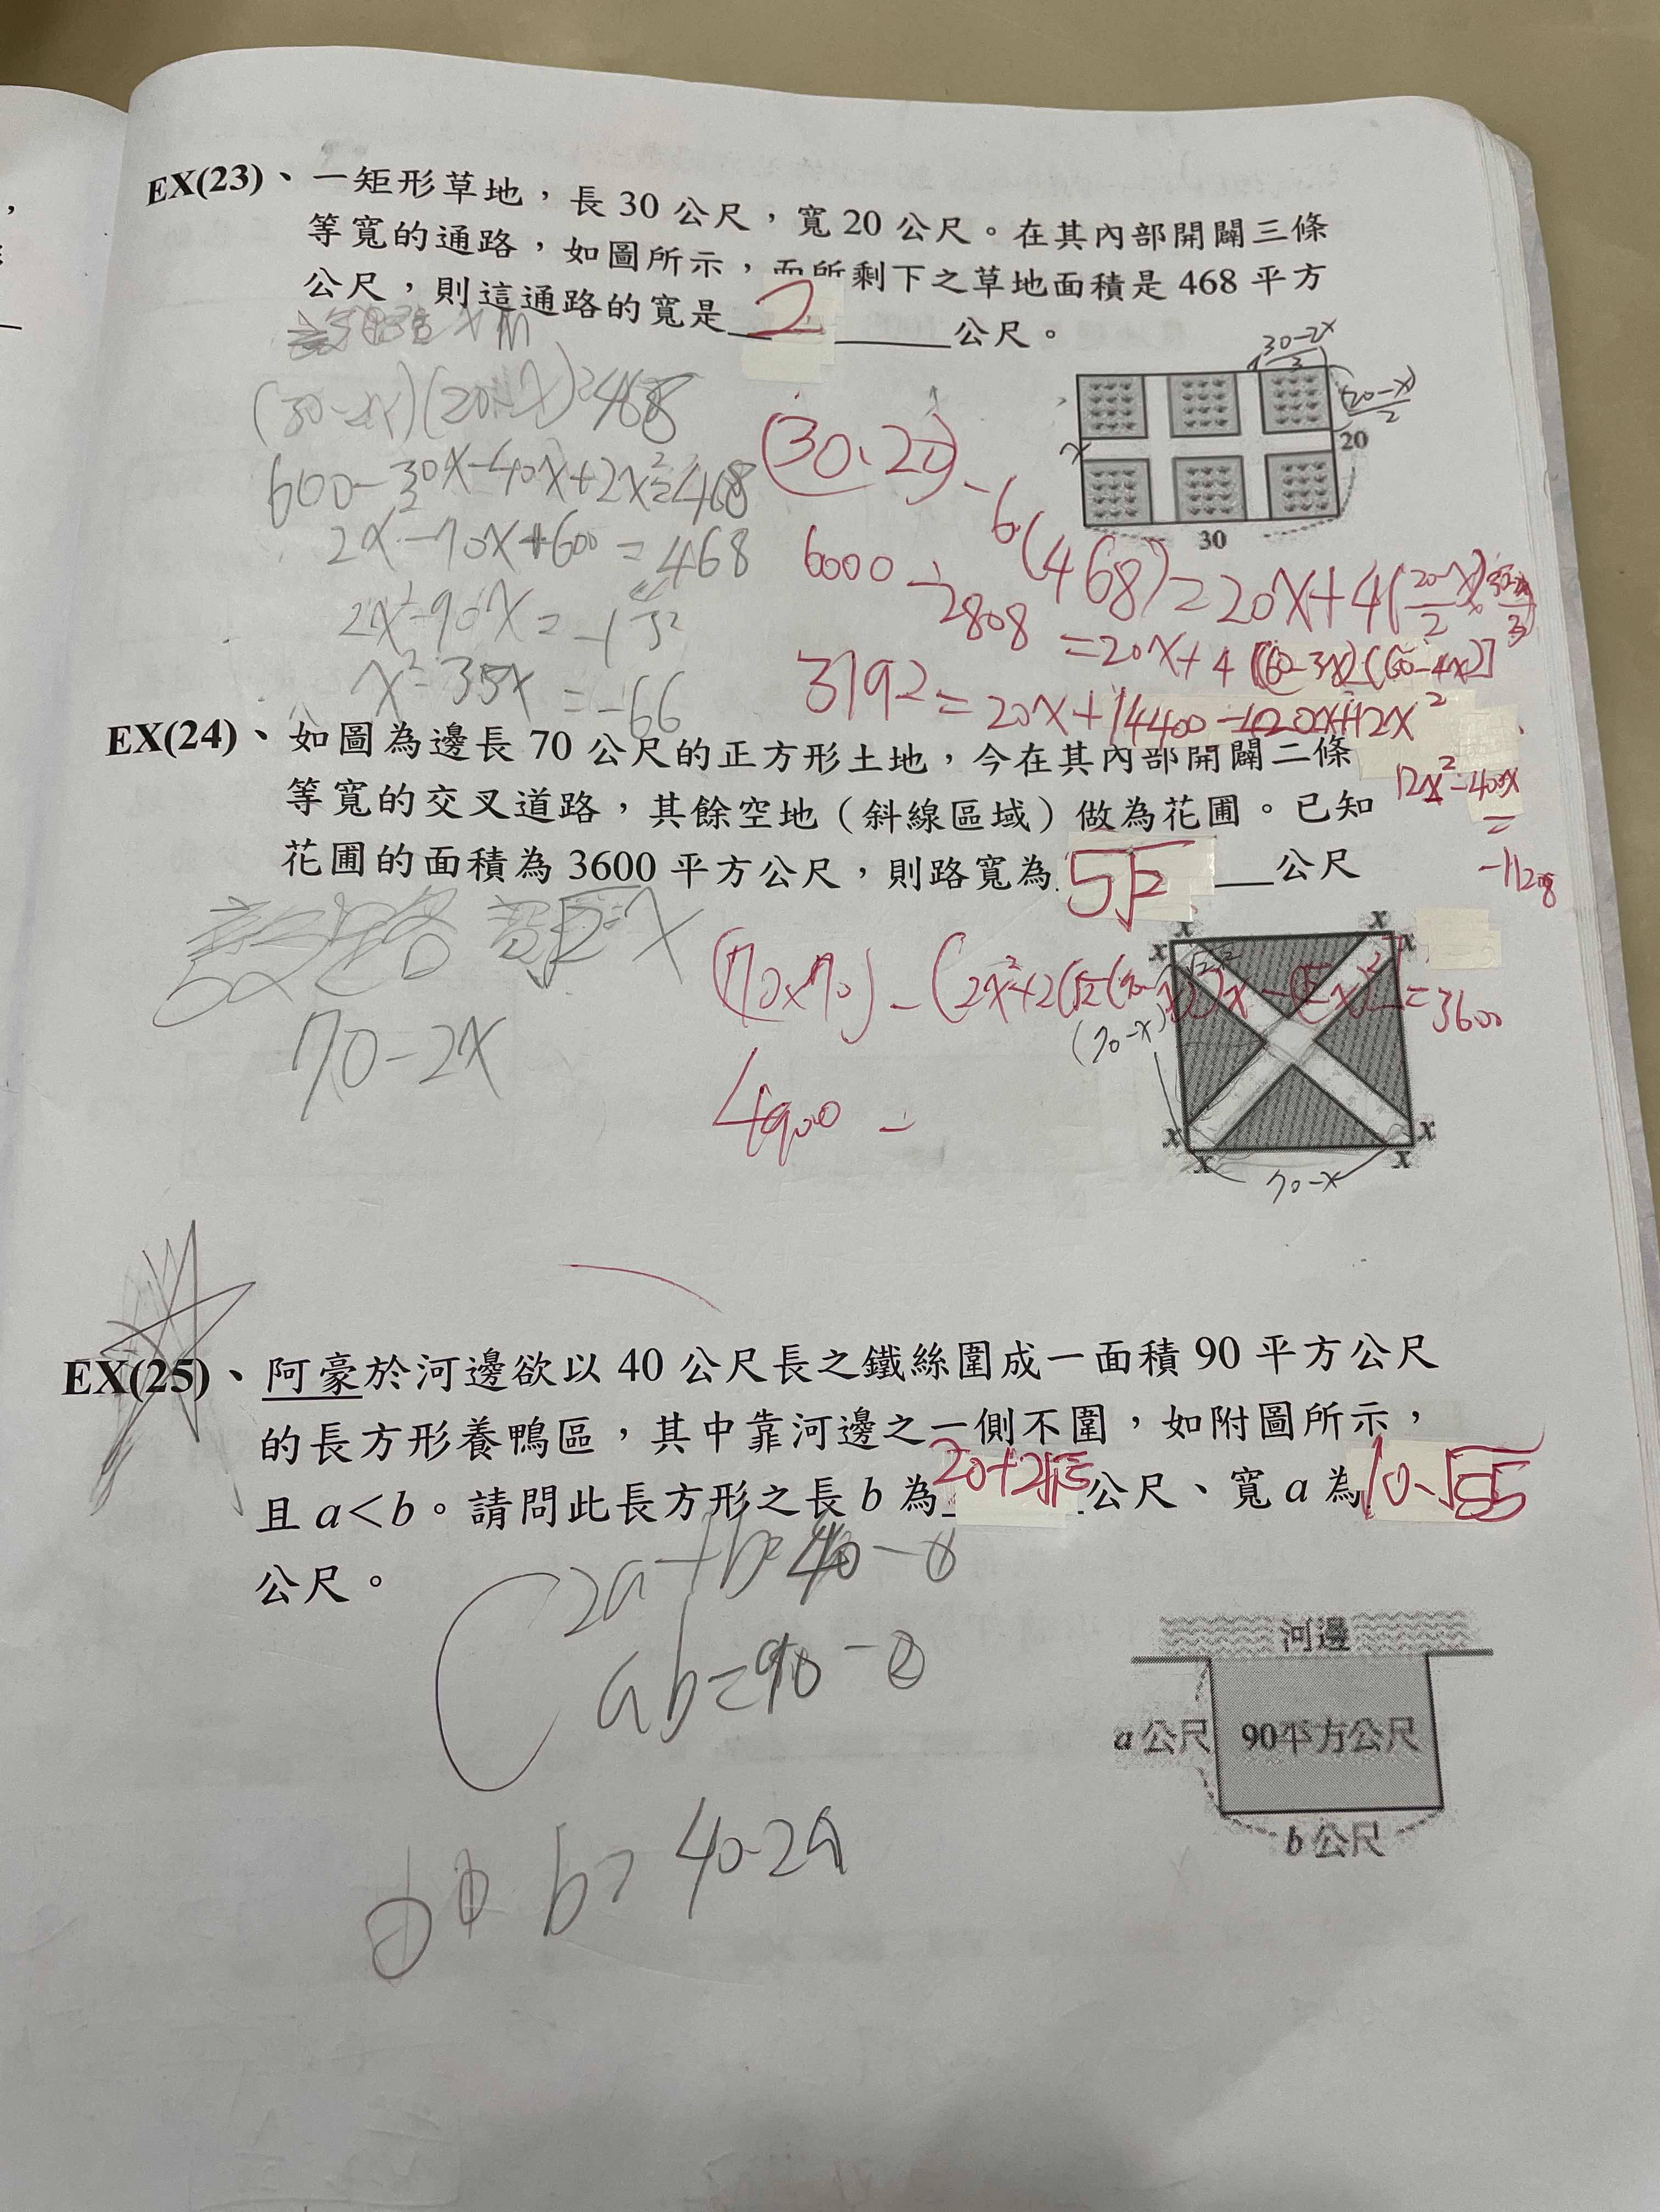 EX(23)、一矩形草地，長 30 公尺，寬 20 公尺。在其內部開闢三條
等寬的通路，如圖所示，而所剩下之草地面積是 468 平方
公尺，則這通路的寬是 2 公尺。
(30-2x)(20-x)=468
600-30x-40x+2x²=468
2x²-70x+600=468
x²-35x=-66
30-2x
3
(20-x)
2
x
20
30
(30、20)-6(468)=20x+4(20-x/2 x 30-2x/3)
6000-2808=20x+4[(60-3x)(60-4x)]
3192=20x+14400
12x²
-11208
EX(24)、如圖為邊長 70 公尺的正方形土地，今在其內部開闢二條
等寬的交叉道路，其餘空地（斜線區域）做為花圃。已知
花圃的面積為 3600 平方公尺，則路寬為 5√2 公尺
70-2x
(70x70)-(2x²+2
=3600
4900 -
x x
x x
(70-x)
x x
x x
70-x
EX(25)、阿豪於河邊欲以 40 公尺長之鐵絲圍成一面積 90 平方公尺
的長方形養鴨區，其中靠河邊之一側不圍，如附圖所示，
且 a<b。請問此長方形之長 b 為 公尺、寬 a 為 10-√55
公尺。
2a+b=40
ab=90-②
b=40-2a
河邊
a 公尺
90平方公尺
b 公尺